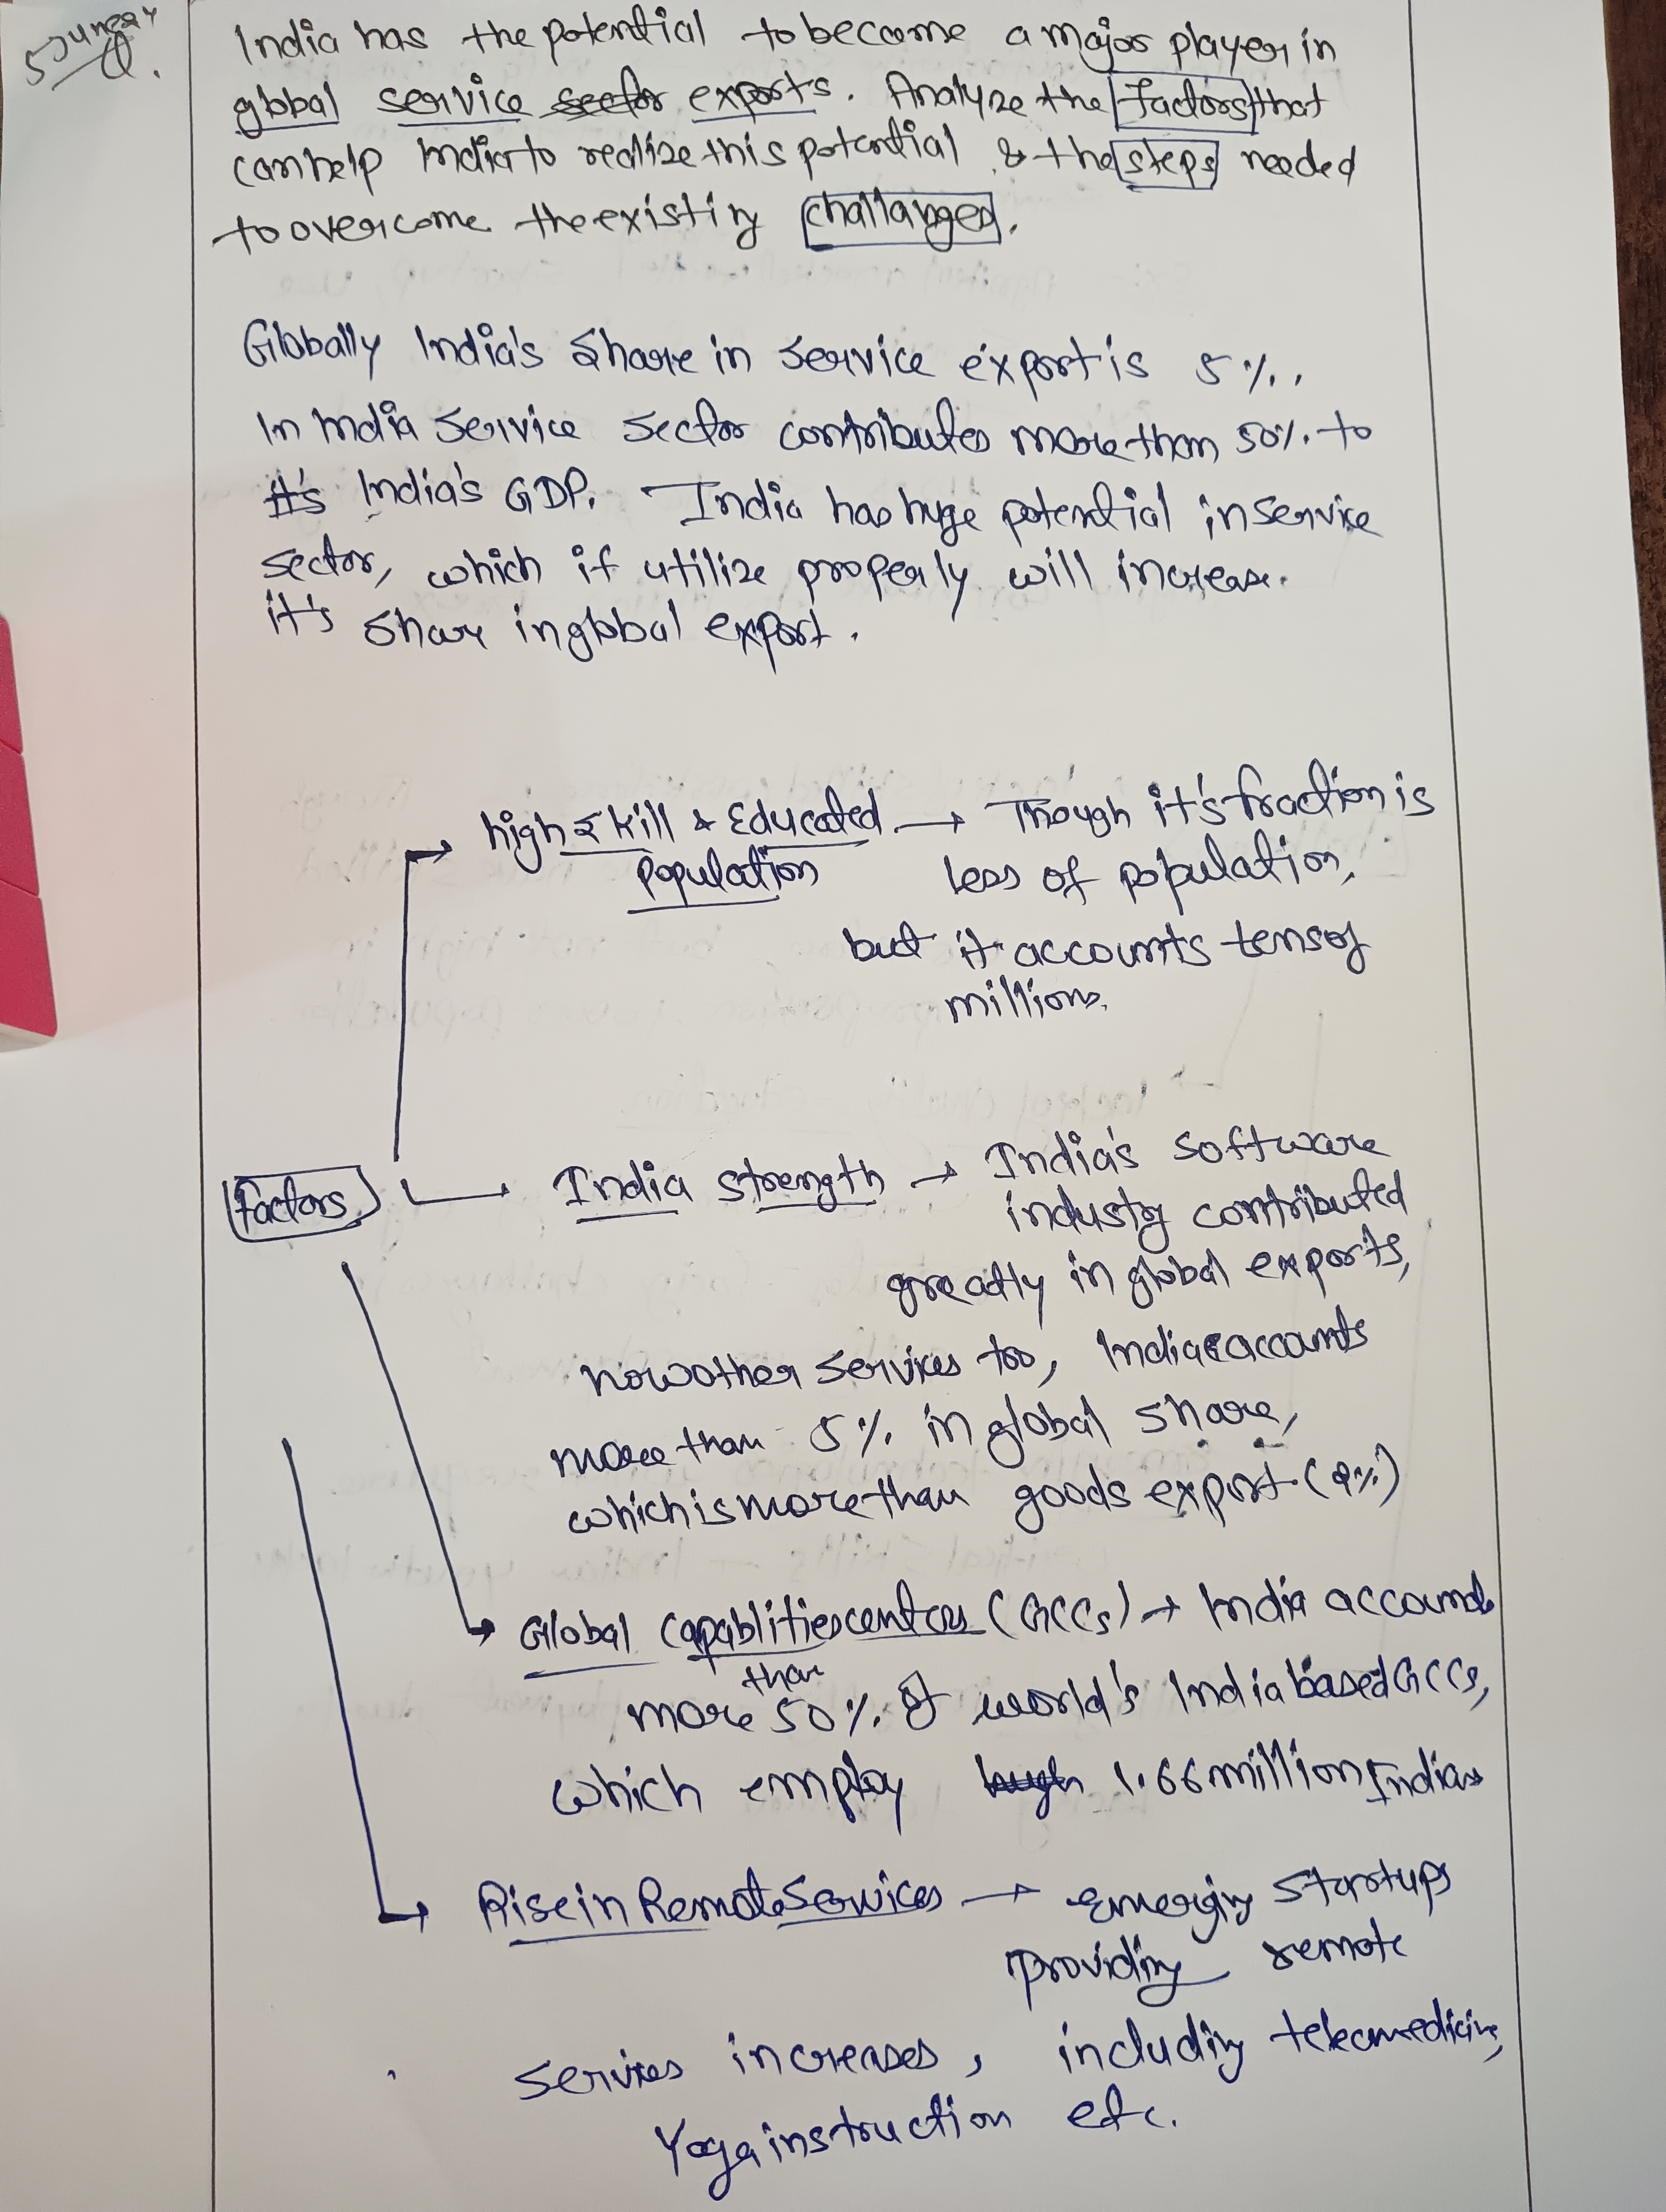 5 June 24
Q.
India has the potential to become a major player in
global service sector exports. Analyze the factors that
can help India to realize this potential & the steps needed
to overcome the existing challanges.
Globally India's share in service export is 5%.
In India service sector contributes more than 50% to
it's India's GDP. India has huge potential in service
sector, which if utilize properly will increase
it's share in global export.
high skill & Educated → Though it's fraction is
population less of population,
but it accounts tens of
millions.
Factors → India strength → India's software
industry contributed
greatly in global exports,
now other services too, India accounts
more than 5% in global share,
which is more than goods export (2%)
Global capablities centers (GCCs) → India accounts
more than 50% of world's India based GCCs,
which employ 1.66 million Indians
Rise in Remote Services → emerging startups
providing remote
services increases, including telemedicine,
Yoga instruction etc.